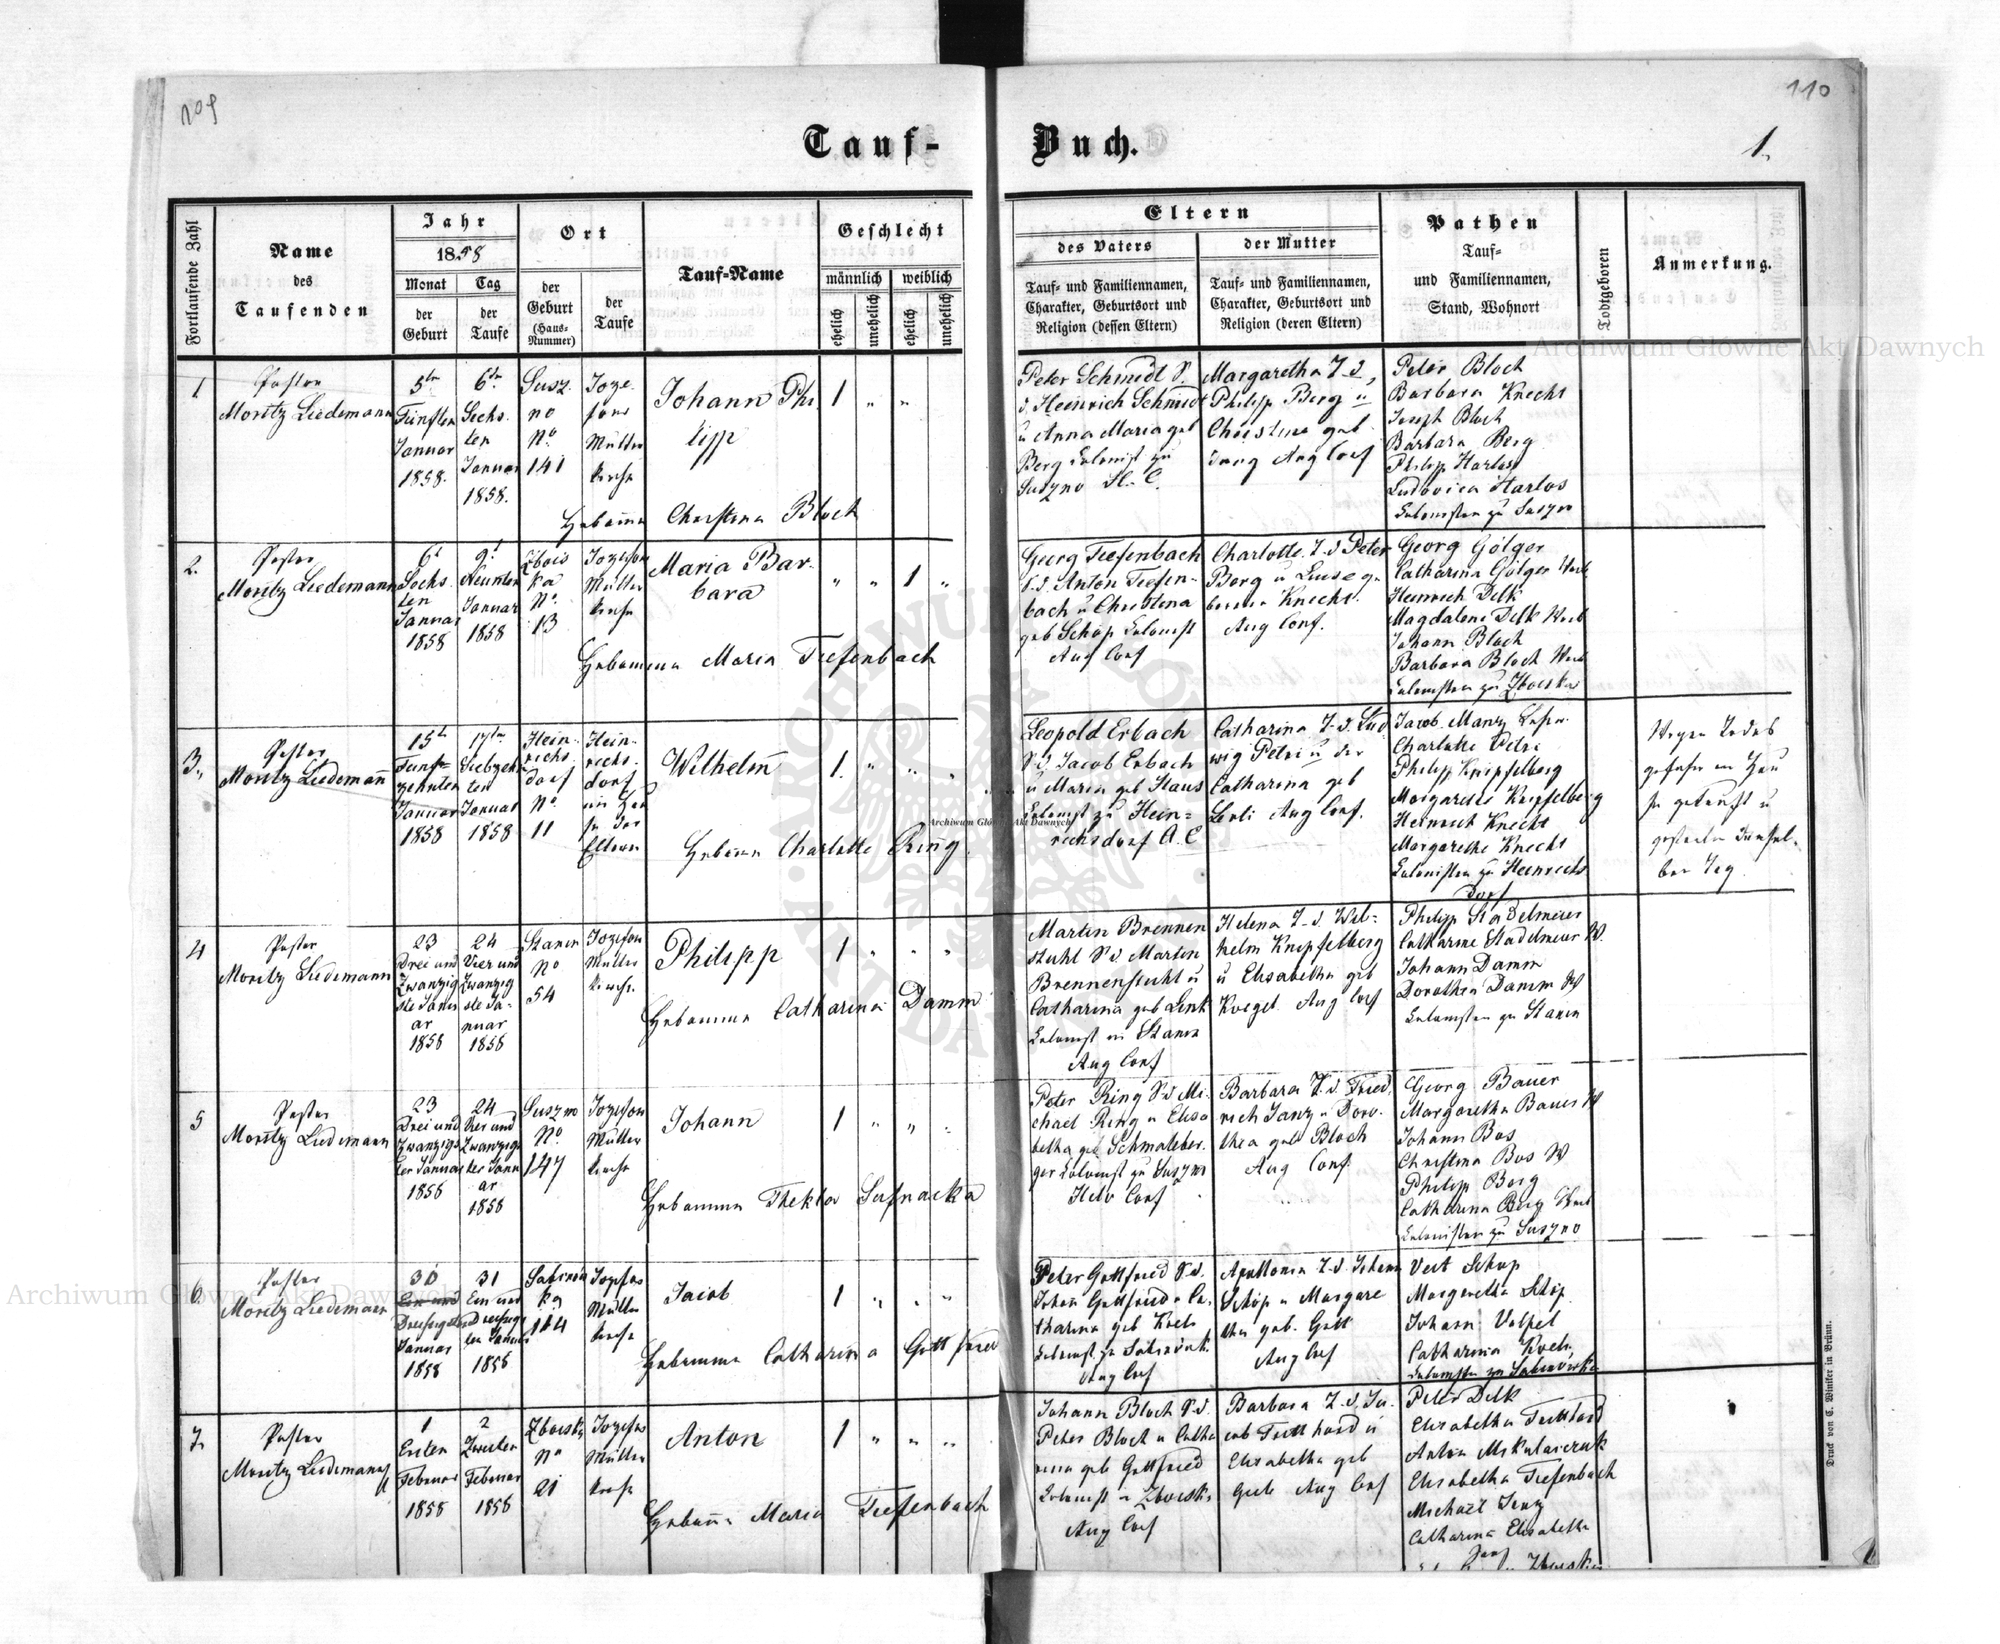 109
110
Tauf-Buch.
1.
Fortlaufende Zahl
Name
des
Taufenden
Jahr
1858
Monat
der
Geburt
Tag
der
Taufe
Ort
der
Geburt
(Haus-
Nummer)
der
Taufe
Tauf-Name
Geschlecht
männlich
weiblich
ehelich
unehelich
ehelich
unehelich
Eltern
des Vaters
Tauf- und Familiennamen,
Charakter, Geburtsort und
Religion (dessen Eltern)
der Mutter
Tauf- und Familiennamen,
Charakter, Geburtsort und
Religion (deren Eltern)
Pathen
Tauf-
und Familiennamen,
Stand, Wohnort
Todtgeboren
Anmerkung.
1
Pastor
Moritz Liedemann
5ten
Fünften
Januar
1858.
6ten
Sechs-
ten
Januar
1858.
Susz-
no
No
141
Joze-
fow
Mutter
kirche
Johann Phi-
lipp
1 " "
Hebamme Christina Bloch
Peter Schmidt S.
d. Heinrich Schmidt
u Anna Maria geb
Berg Kolonist zu
Suszno H. C.
Margaretha T. d.
Philipp Berg u
Christina geb
Jung Aug Conf
Peter Bloch
Barbara Knecht
Joseph Bloch
Barbara Berg
Philipp Harlos
Ludovica Harlos
Kolonisten zu Suszno
2.
Pastor
Moritz Liedemann
6t
Sechs-
ten
Januar
1858
9t
Neunten
Januar
1858
Zbois
ka
No.
13
Jozefow
Mutter
kirche
Maria Bar-
bara
" " 1 "
Hebamme Maria Tiefenbach
Georg Tiefenbach
S. d. Anton Tiefen-
bach u Christina
geb Schöp Kolonist
Aug Conf
Charlotte T. d Peter
Berg u Luise ge-
borene Knecht.
Aug Conf.
Georg Gölger
Catharina Gölger Weib
Heinrich Delk
Magdalena Delk Weib
Johann Bloch
Barbara Bloch Weib
Kolonisten zu Zboiska
3.
Pastor
Moritz Liedemann
15ten
Fünf-
zehnten
Januar
1858
17ten
Siebzehn
ten
Januar
1858
Hein-
richs-
dorf
No.
11
Hein-
richs-
dorf
im Hau
se der
Eltern
Wilhelm
1. " " "
Hebamme Charlotte Ring.
Leopold Erbach
S. d. Jacob Erbach
u Maria geb Haus
Kolonist zu Hein-
richsdorf A. C
Catharina T. d. Lud
wig Petri u der
Catharina geb
Aug Conf.
Jacob Manz
Charlotte Petri
Philipp Knipfelberg
Margaretha Knipfelberg
Heinrich Knecht
Margarethe Knecht
Kolonisten zu Heinrichs
dorf
Wegen Todes
gefahr im Hau
se getauft u
gestorben denssel-
ben Tag
4
Pastor
Moritz Liedemann
23
Drei und
Zwanzig
ste Janu
ar
1858
24
Vier und
Zwanzig
ste Ja-
nuar
1858
Stanin
No
54
Jozefow
Mutter
kirche
Philipp
1 " " "
Hebamme Catharina Damm
Martin Brennen
stuhl S d. Martin
Brennenstuhl u
Catharina geb Link
Kolonist in Stanin
Aug Conf
Helena T. d. Wil-
helm Knipfelberg
u Elisabetha geb
Aug Conf
Philipp Stadelmeier
Catharine Stadelmeier W.
Johann Damm
Dorothea Damm W
Kolonisten zu Stanin
5
Pastor
Moritz Liedemann
23
Drei und
Zwanzigs
ter Januar
1858
24
Vier und
Zwanzigs
ter Janu
ar
1858
Suszno
No.
147
Jozefow
Mutter
kirche
Johann
1 " " "
Hebamme Thekla
Peter Ring S d. Mi-
chael Ring u Elisa
betha geb Schmalenber-
ger Kolonist zu Suszno
Helv Conf
Barbara T. d. Fried,
rich Janz u Doro-
thea geb Bloch
Aug Conf.
Georg Bauer
Margaretha Bauer W
Johann Bos
Christina Bos W
Philipp Berg
Catharina Berg Weib
Kolonisten zu Suszno
6.
Pastor
Moritz Liedemann
30
Ein und
Dreisigsten
Januar
1858
31
Ein und
Dreisigs
ten Januar
1858
Sabinow
ka
114
Jozefow
Mutter
kirche
Jacob
1 " " "
Hebamme Catharina Gottfried
Peter Gottfried S. d.
Johann Gottfried u Ca-
tharina geb Koch
Kolonist zu Sabinowk.
Aug Conf
Apollonia T. d. Johann
Schöp u Margare
tha geb. Gott
Aug Conf
Veit Schöp
Margaretha Schöp
Johann Volpel
Catharina Koch,
Kolonisten zu Sabinowka
7.
Pastor
Moritz Liedemann
1
Ersten
Februar
1858
2
Zweiten
Februar
1858
Zboiska
No
21
Jozefow
Mutter
kirche
Anton
1 " " "
Hebamme Maria Tiefenbach
Johann Bloch S. d.
Peter Bloch u Catha
rina geb Gottfried
Kolonist in Zboiska
Aug Conf
Barbara T. d. Ja-
cob Tritthard u
Elisabetha geb
Aug Conf
Peter Delk
Elisabetha Tritthard
Anton Mikulaiczuk
Elisabetha Tiefenbach
Michael Janz
Catharina Elisabetha
Janz
Zboiska
Druck von C. Winiker in Brünn.
Archiwum Główne Akt Dawnych
Archiwum Główne Akt Dawnych
Archiwum Główne Akt Dawnych